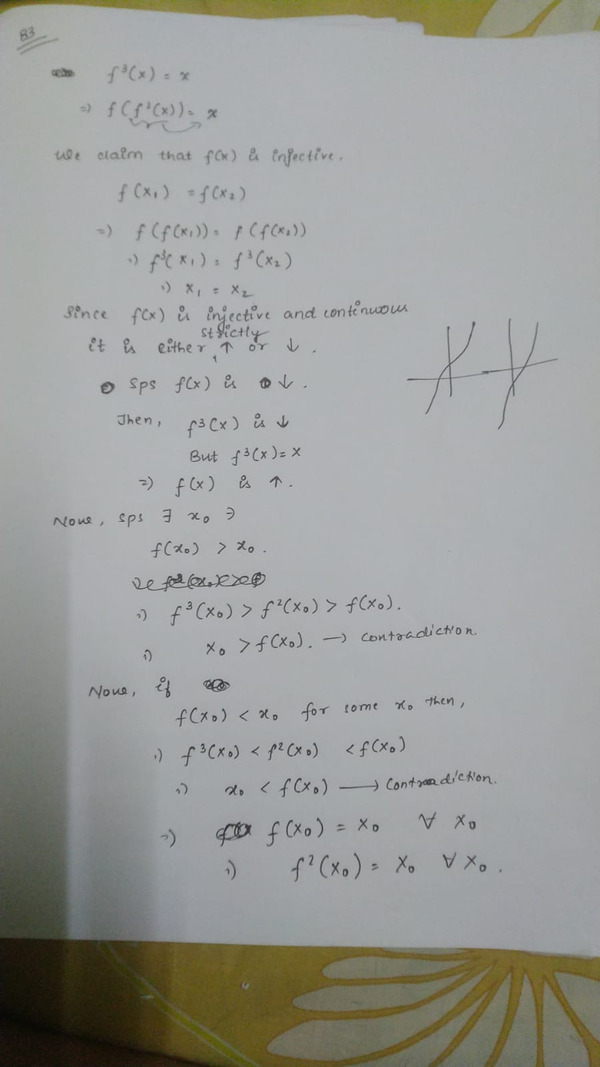 83
f³(x) = x
=) f(f²(x)) = x
We claim that f(x) is injective.
f(x₁) = f(x₂)
=) f(f(x₁)) = f(f(x₂))
=) f³(x₁) = f³(x₂)
=) x₁ = x₂
Since f(x) is injective and continuous
it is either strictly ↑ or ↓.
Sps f(x) is ↓.
Then, f³(x) is ↓
But f³(x) = x
=) f(x) is ↑.
Now, sps ∃ x₀ ∋
f(x₀) > x₀.
=) f³(x₀) > f²(x₀) > f(x₀).
=) x₀ > f(x₀). → contradiction.
Now, if
f(x₀) < x₀ for some x₀ then,
=) f³(x₀) < f²(x₀) < f(x₀)
=) x₀ < f(x₀) → contradiction.
=) f(x₀) = x₀ ∀ x₀
=) f²(x₀) = x₀ ∀ x₀.